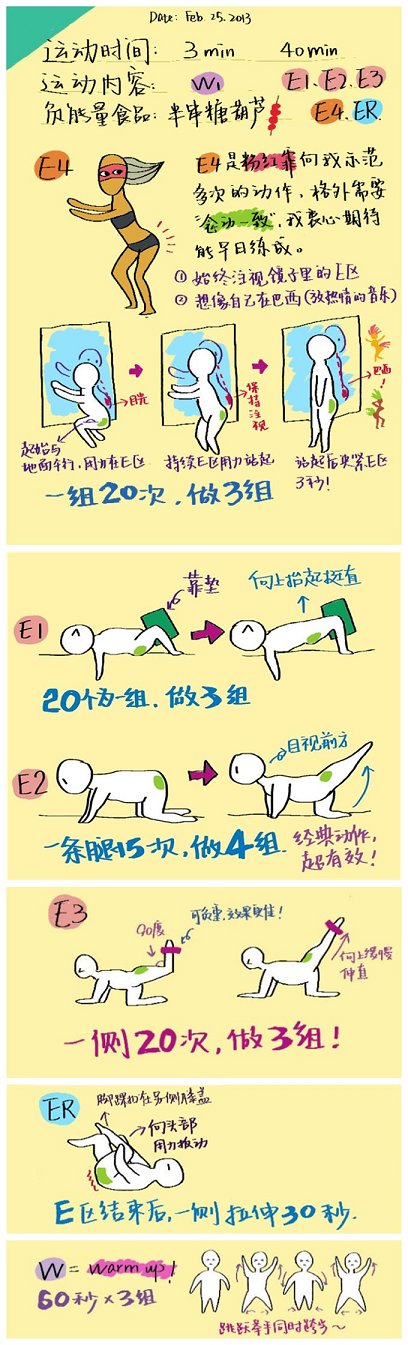 Date: Feb. 25. 2013
运动时间: 3min 40min
运动内容: W1 E1. E2. E3
负能量食品: 半串糖葫芦 E4. ER
E4
E4是粉红靠向我示范
多次的动作, 格外需要
"念动一致", 我衷心期待
能早日练成。
① 始终注视镜子里的E区
② 想像自己在巴西(放热情的音乐)
目光
保持注视
巴西!
起始与
地面平行, 用力在E区
持续E区用力站起
站起后夹紧E区
3秒!
一组20次, 做3组
E1
靠垫
向上抬起挺直
20个为一组, 做3组
E2
目视前方
一条腿15次, 做4组.
经典动作,
超有效!
E3
90度
可负重, 效果更佳!
向上缓慢
伸直
一侧20次, 做3组!
ER
脚踝扣在另侧膝盖
向头部
用力扳动
E区结束后, 一侧拉伸30秒.
W = warm up!
60秒×3组
跳跃举手同时跨步~